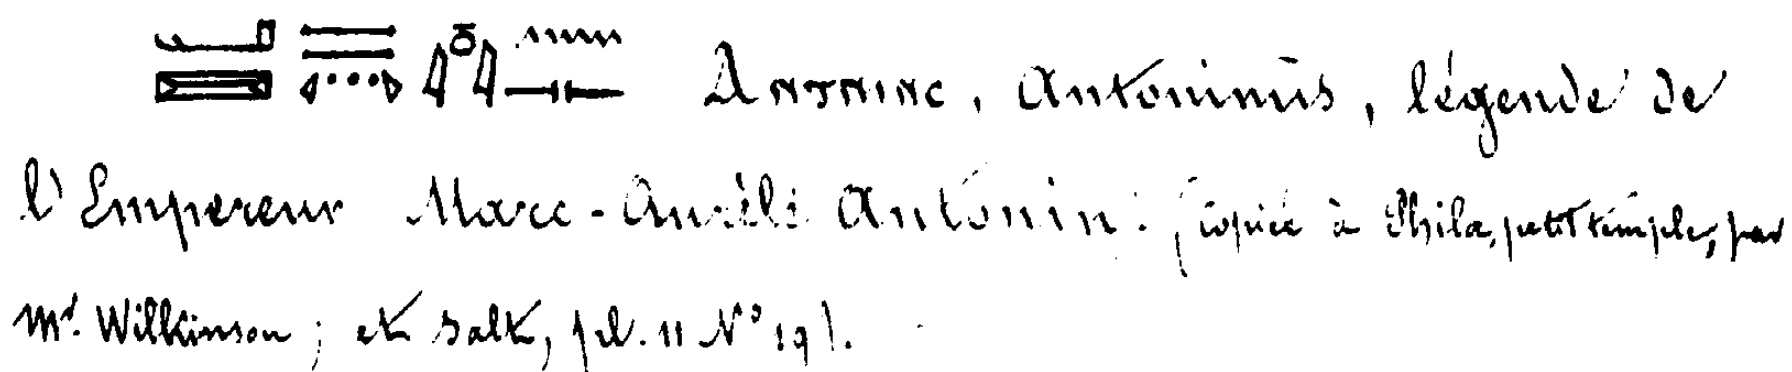 Antoninus, légende de
l'Empereur Marc-Aurèle Antonin: (copiée à Philæ, petit temple, par
Mr. Wilkinson; et Salt, pl. 11 N° 19).